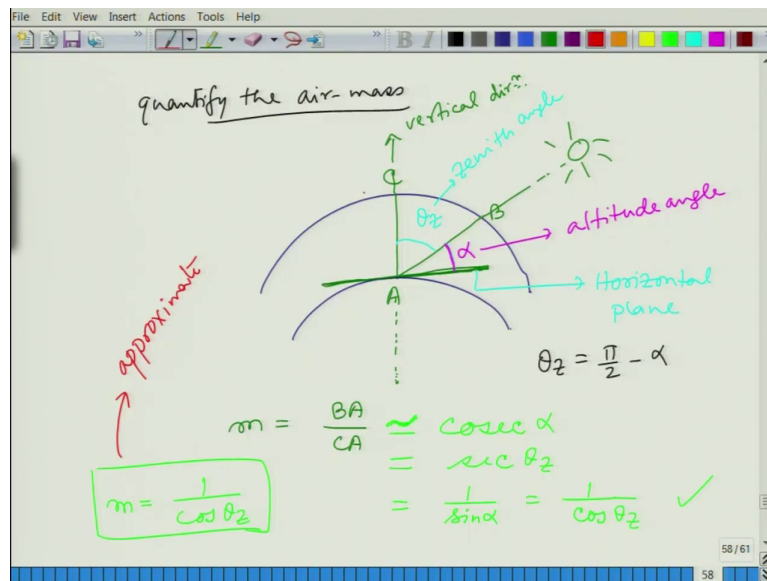 File Edit View Insert Actions Tools Help
quantify the air-mass
vertical dirⁿ.
zenith angle
C
θz
B
α
altitude angle
A
Horizontal plane
approximate
θz = π/2 - α
m = BA/CA ≃ cosec α
= sec θz
m = 1/cos θz
= 1/sinα = 1/cos θz ✓
58/61
58